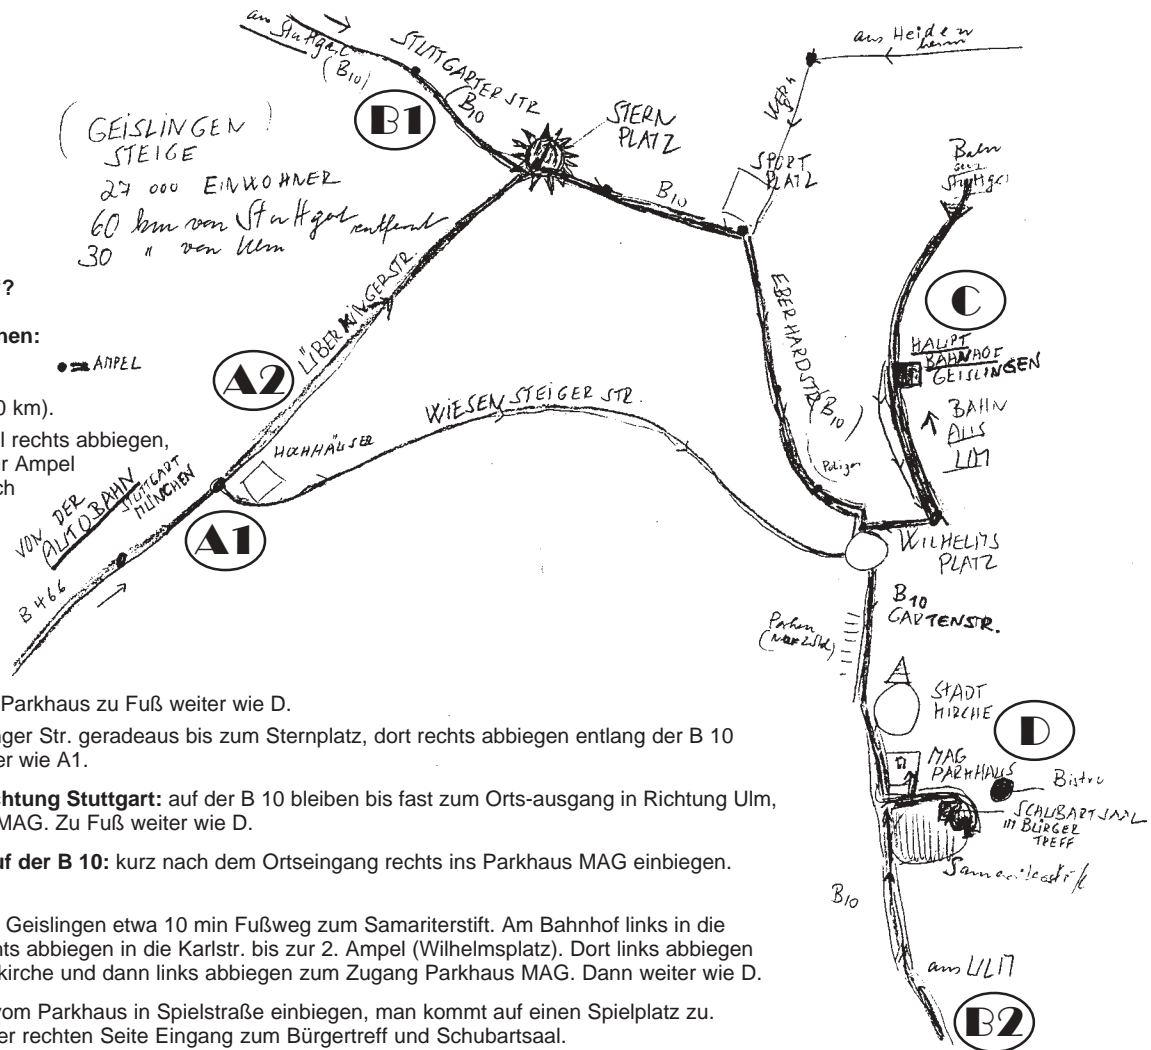 aus Stuttgart
(B10)
STUTTGARTER STR
(B10
B1
STERN
PLATZ
aus Heiden
heim
SPORT
PLATZ
B10
Bahn
aus
Stuttgart
(GEISLINGEN)
STEIGE
27 000 EINWOHNER
60 km von Stuttgart entfernt
30 " von Ulm
?
nen:
AMPEL
0 km).
l rechts abbiegen,
r Ampel
ch
A2
ÜBERKINGERSTR.
WIESENSTEIGER STR.
HOCHHÄUSER
A1
VON DER
AUTOBAHN
STUTTGART
MÜNCHEN
B 466
EBERHARDSTR
(B10)
C
HAUPT
BAHNHOF
GEISLINGEN
BAHN
AUS
ULM
WILHELMS
PLATZ
B10
GARTENSTR.
Parken
STADT
KIRCHE
D
MAG
PARKHAUS
Bistro
SCHUBARTSAAL
IM BÜRGER
TREFF
Samariterstift
B10
aus ULM
B2
Parkhaus zu Fuß weiter wie D.
nger Str. geradeaus bis zum Sternplatz, dort rechts abbiegen entlang der B 10
er wie A1.
chtung Stuttgart: auf der B 10 bleiben bis fast zum Orts-ausgang in Richtung Ulm,
MAG. Zu Fuß weiter wie D.
uf der B 10: kurz nach dem Ortseingang rechts ins Parkhaus MAG einbiegen.
Geislingen etwa 10 min Fußweg zum Samariterstift. Am Bahnhof links in die
hts abbiegen in die Karlstr. bis zur 2. Ampel (Wilhelmsplatz). Dort links abbiegen
kirche und dann links abbiegen zum Zugang Parkhaus MAG. Dann weiter wie D.
vom Parkhaus in Spielstraße einbiegen, man kommt auf einen Spielplatz zu.
er rechten Seite Eingang zum Bürgertreff und Schubartsaal.